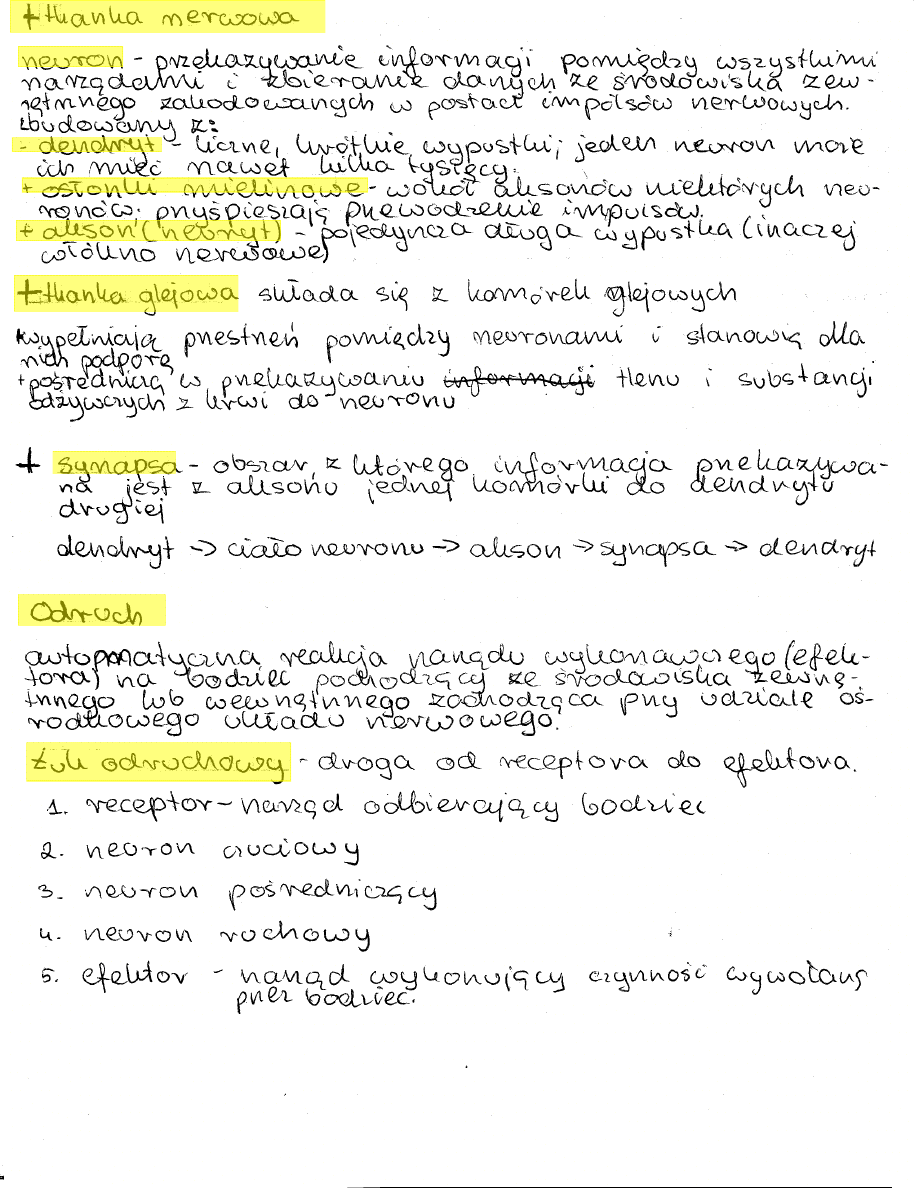 + tkanka nerwowa
neuron - przekazywanie informacji pomiędzy wszystkimi
narządami i zbieranie danych ze środowiska zew-
nętrznego zakodowanych w postaci impulsów nerwowych.
zbudowany z:
- dendryt - liczne, krótkie wypustki; jeden neuron może
ich mieć nawet kilka tysięcy.
+ osłonki mielinowe - wokół aksonów niektórych neu-
ronów; przyśpieszają przewodzenie impulsów.
+ akson (neuryt) - pojedyncza długa wypustka (inaczej
włókno nerwowe)
+ tkanka glejowa składa się z komórek glejowych
wypełniają przestrzeń pomiędzy neuronami i stanowią dla
nich podporę
+ pośredniczą w przekazywaniu informacji tlenu i substancji
odżywczych z krwi do neuronu
+ synapsa - obszar, z którego informacja przekazywa-
na jest z aksonu jednej komórki do dendrytu
drugiej
dendryt -> ciało neuronu -> akson -> synapsa -> dendryt
Odruch
automatyczna reakcja narządu wykonawczego (efek-
tora) na bodziec pochodzący ze środowiska zewnę-
trznego lub wewnętrznego zachodząca przy udziale oś-
rodkowego układu nerwowego.
Łuk odruchowy - droga od receptora do efektora.
1. receptor - narząd odbierający bodziec
2. neuron czuciowy
3. neuron pośredniczący
4. neuron ruchowy
5. efektor - narząd wykonujący czynność wywołaną
przez bodziec.